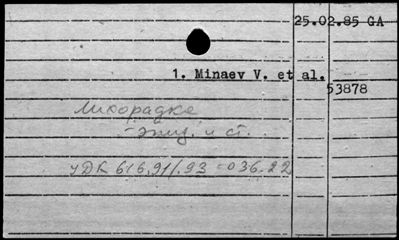 25.02.85 GA
1. Minaev V. et al.
53878
Лихорадке,
- эпид. и ст.
УДК 616.91/.93-036.22